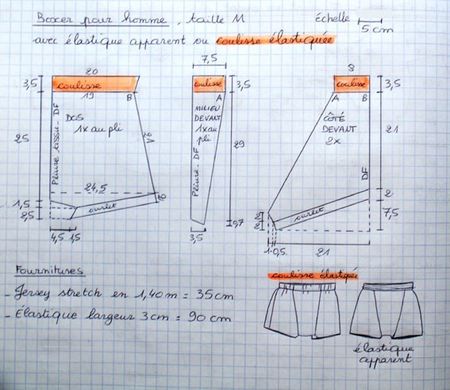 Boxer pour homme, taille M
Échelle
5 cm
avec élastique apparent ou coulisse élastiquée
20
3,5
coulisse
19
B
25
Pliure tissu - DF
DOS
1x au pli
21
24,5
1,5
2,5
ourlet
4,5
1,5
7,5
3,5
A
MILIEU
DEVANT
1x au
pli
Pliure - DF
29
0,7
3,5
8
coulisse
3,5
A
B
CÔTÉ
DEVANT
2x
21
DF
2
7,5
ourlet
2
2
1
0,5
21
Fournitures
- Jersey stretch en 1,40m = 35cm
- Élastique largeur 3cm = 90cm
coulisse élastiquée
élastique
apparent